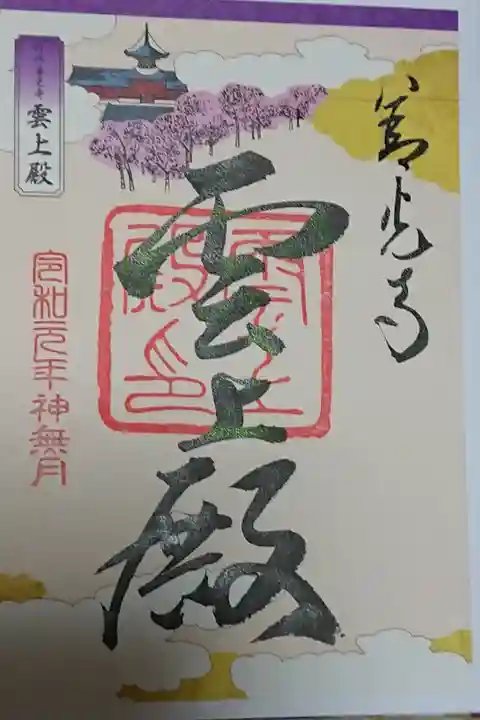 善光寺
雲上殿
雲上殿印
雲上殿
令和元年神無月